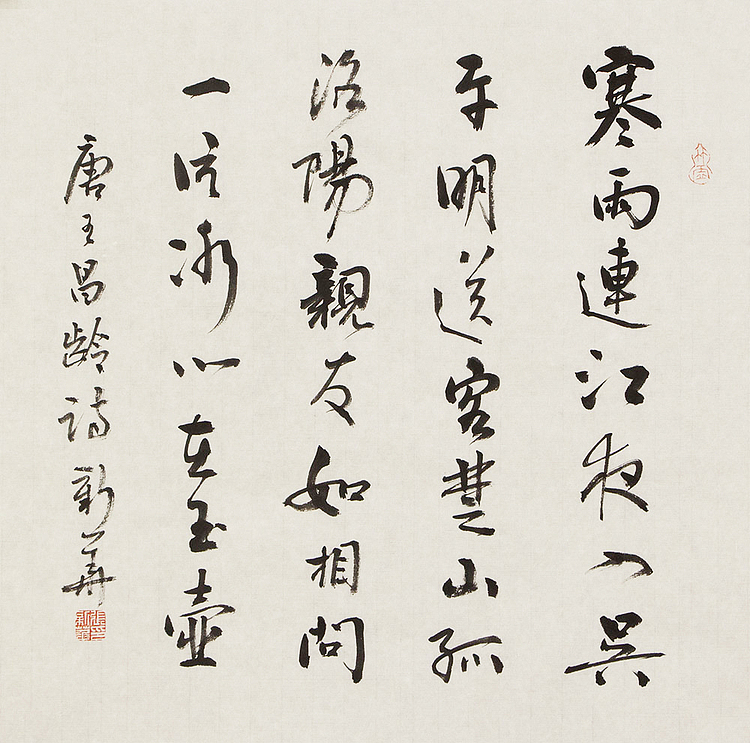 寒雨連江夜入吳
平明送客楚山孤
洛陽親友如相問
一片冰心在玉壺
唐王昌齡詩 新華